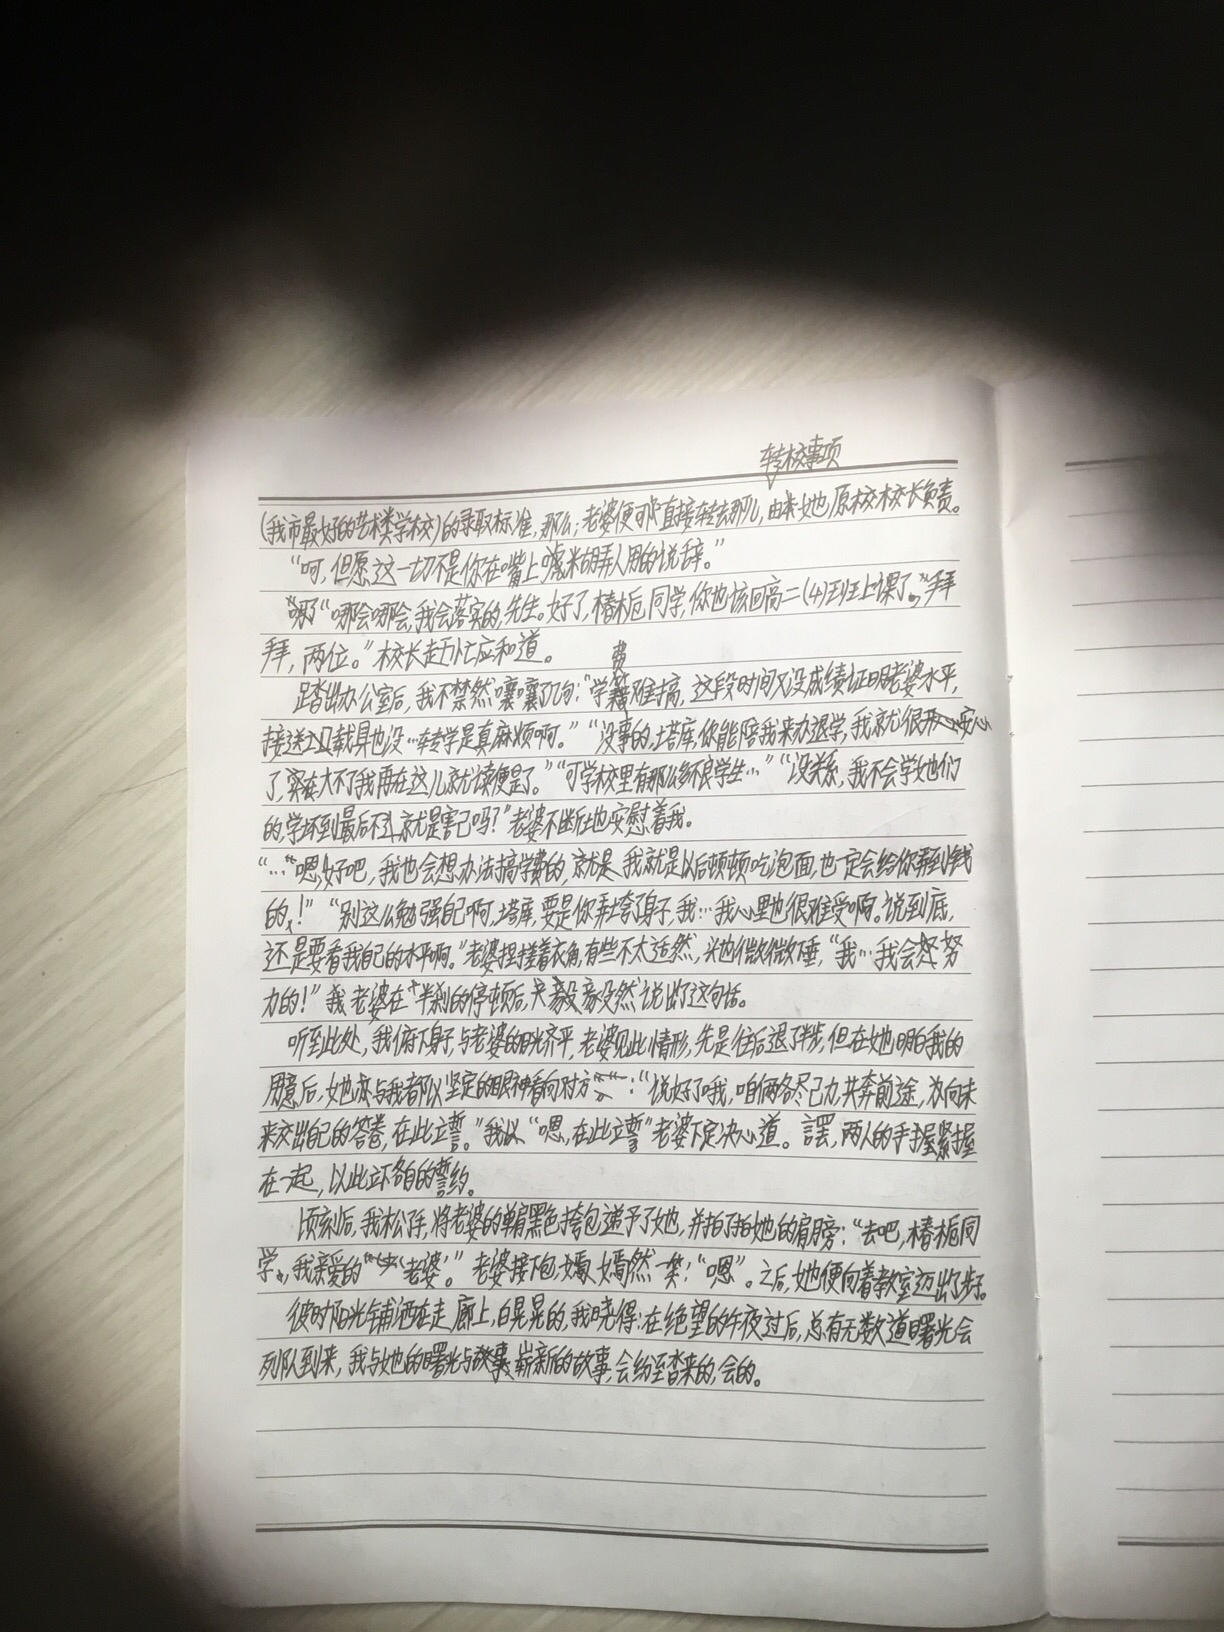 转校事项
(我市最好的艺术类学校)的录取标准,那么,老婆便可直接转去那儿,由她原校校长负责。
“呵,但愿这一切不是你在嘴上嘘来胡弄人用的说辞。”
“哪会哪会,我会落实的,先生。好了,椿栀同学,你也该回高二(4)班上课了。”拜
拜,两位。”校长赶忙应和道。
踏出办公室后,我不禁然嚷嚷了几句:“学费难搞,这段时间又没成绩证明老婆水平,
接送载具也没…转学是真麻烦啊。”“没事的,塔库,你能陪我来办退学,我就很安心
了,实在大不了我再在这儿就读便是了。”“可学校里有那么多不良学生…”“没关系,我不会学她们
的,学坏到最后不就是害己吗?”老婆不断地安慰着我。
“…嗯,好吧,我也会想办法搞学费的,我就是以后顿顿吃泡面,也一定会给你弄到钱
的!”“别这么勉强自己啊,塔库,要是你弄垮了身子,我…我心里也很难受啊。说到底,
还是要看我自己的水平啊。”老婆捏搓着衣角,有些不太适然,头也微微微垂,“我…我会努
力的!”老婆在半刹的停顿后,毅然说出了这句话。
听到此处,我俯下身子,与老婆的目光齐平,老婆见此情形,先是往后退了半步,但在她明白我的
用意后,她亦与我都以坚定的眼神看向对方:“说好了哦,咱俩各尽己力,共奔前途,为向未
来交出自己的答卷,在此立誓。”“嗯,在此立誓”老婆下定决心道。言罢,两人的手握紧握
在一起,以此立下各自的誓约。
顷刻后,我松了手,将老婆的单肩黑色挎包递予了她,并拍了拍她的肩膀:“去吧,椿栀同
学,我亲爱的老婆。”老婆接下包,嫣然一笑:“嗯”。之后,她便向着教室迈出了步子。
彼时阳光铺洒在走廊上,白晃晃的,我晓得:在绝望的午夜过后,总有无数道曙光会
列队到来,我与她的曙光与崭新的故事,会纷至沓来的,会的。